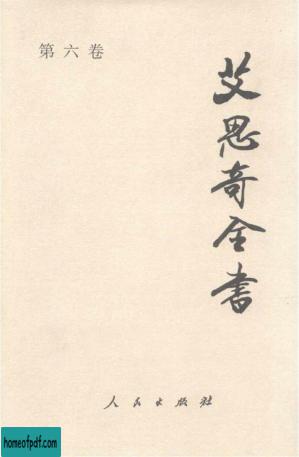 第六卷
艾思奇全书
人民出版社
homeofpdf.com